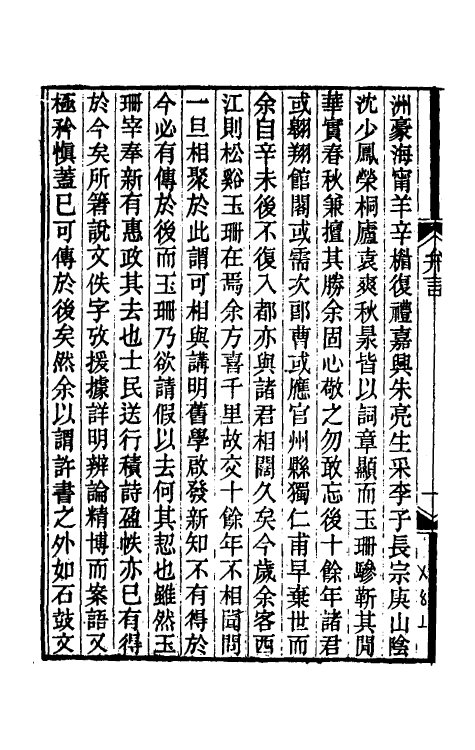 洲豪海甯羊辛楣復禮嘉興朱亮生采李子長宗庚山陰
沈少鳳榮桐廬袁爽秋㫤皆以詞章顯而玉珊驂靳其閒
華實春秋兼擅其勝余固心敬之勿敢忘後十餘年諸君
或翺翔館閣或需次郎曹或應官州縣獨仁甫早棄世而
余自辛未後不復入都亦與諸君相闊久矣今歲余客西
江則松谿玉珊在焉余方喜千里故交十餘年不相聞問
一旦相聚於此謂可相與講明舊學啟發新知不有得於
今必有傳於後而玉珊乃欲請假以去何其恝也雖然玉
珊宰奉新有惠政其去也士民送行積詩盈帙亦已有得
於今矣所箸說文佚字攷援據詳明辨論精博而案語又
極矜愼蓋已可傳於後矣然余以謂許書之外如石鼓文
弁言
一